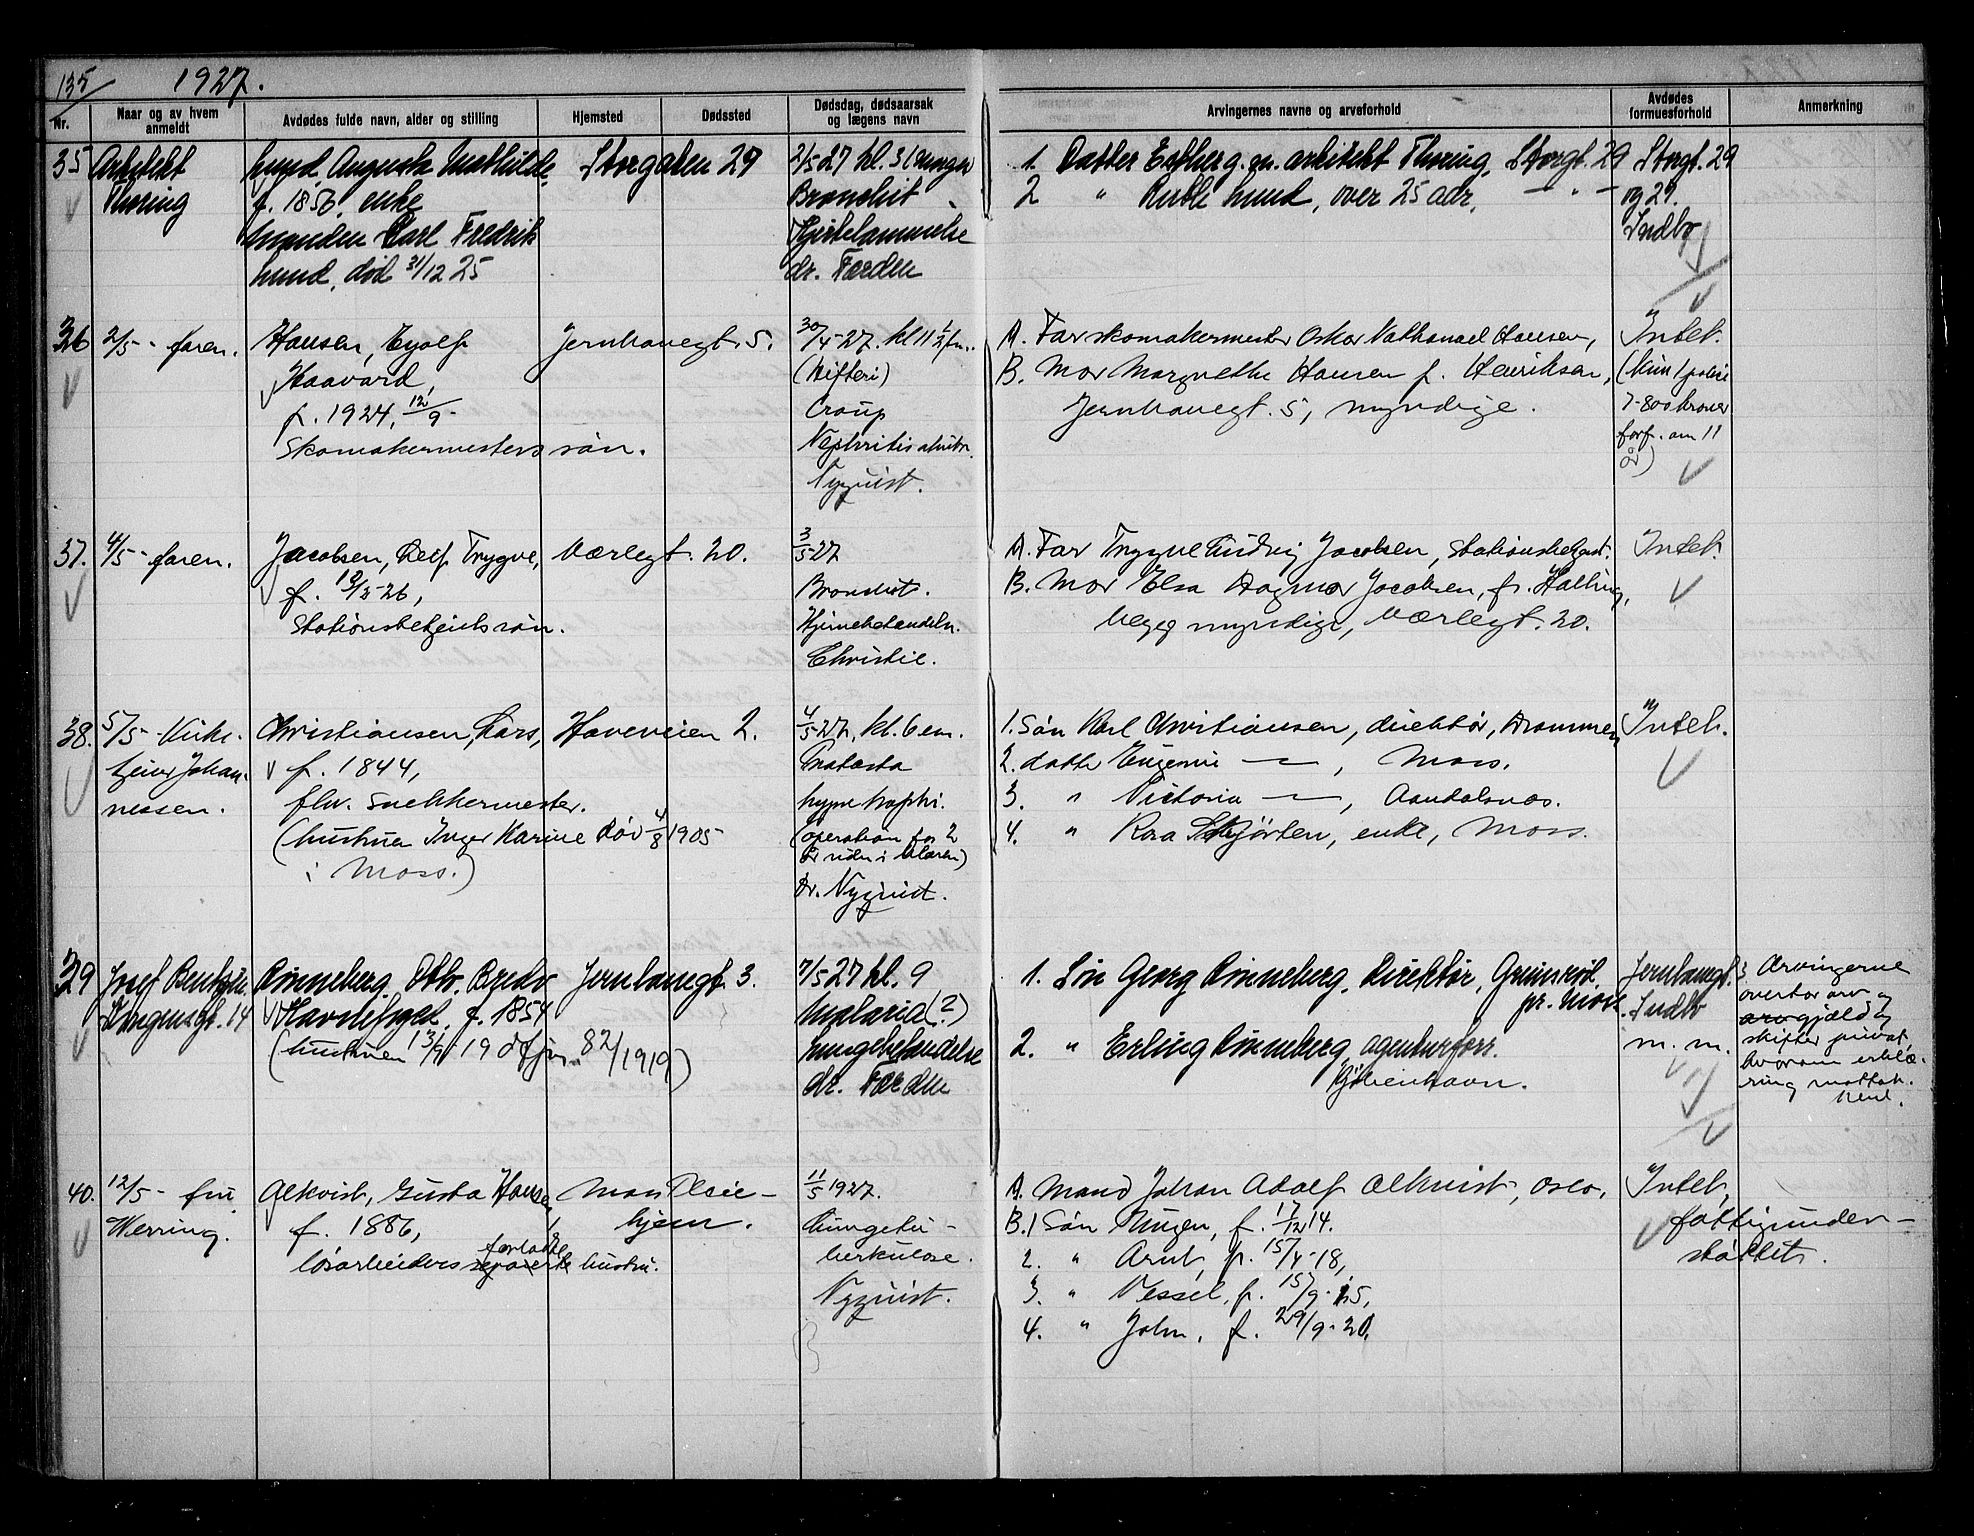 135
1927.
Nr.
Naar og av hvem anmeldt
Avdødes fulde navn, alder og stilling
Hjemsted
Dødssted
Dødsdag, dødsaarsak og lægens navn
Arvingernes navne og arveforhold
Avdødes formuesforhold
Anmerkning
35
Arkitekt
Thoring
Lund, Augusta Mathilde
f. 1856, enke
Manden Carl Fredrik
Lund, død 31/12 25
Storgaten 29
2/5 27 kl. 3
Bronchit
Hjertelammelse
dr. Færden
1. Datter Estberg, g.m. arkitekt Thoring, Storgt. 29
2 " Ruth Lund, over 25 aar, — " —
Storgt. 29
og 27.
Indbo
36
2/5 - faren.
Hansen, Eyolf
Haavard,
f. 1924, 12/9-
Skomakermesters søn.
Jernbanegt. 5.
30/4-27. kl 11 1/2 fm.
(Difteri)
Croup
Nephritis
Nyquist.
A. Far skomakermester Oskar Nathanael Hansen,
B. Mor Margrethe Hansen f. Henriksen,
Jernbanegt. 5, myndige.
Intet.
(Kun 1 polise
7-800 kroner
forf. om 11
år)
37.
4/5 - faren.
Jacobsen, Leif Trygve,
f. 12/3-26,
Stationsbetjents søn.
Værlegt. 20.
3/5-27
Bronchit.
Hjernebetændelse.
Christie.
A. Far Trygve Ludvig Jacobsen, Stationsbetjent.
B. Mor Elsa Dagmar Jacobsen, f. Halling,
begge myndige, Værlegt. 20.
Intet.
38.
5/5 - Kirke-
tjener Johan-
nessen.
Christiansen, Lars,
f. 1844,
fhv. snekkermester.
(hustruen Inger Karine død 4/8 1905
i Moss.)
Haveveien 2.
4/5-27, kl. 6 em.
Prostata
hypertrophi.
(operation for 2
år siden i blæren)
Dr. Nyquist.
1. Søn Karl Christiansen, direktør, Drammen
2. datter Eugenie — , Moss.
3. " Victoria — , Aandalsnæs.
4. " Kaia Skjørten, enke, Moss.
Intet.
39
Josef Bentzen
Kongensgt. 14
Rinneberg, Oth. Bredo
Havnefoged, f. 1854
(hustruen
82/1919)
Jernbanegt. 3.
7/5 27 kl. 9
Malaria (?)
Lungebetændelse
dr. Færden
1. Søn Georg Rinneberg, Direktør, Grimsrød
pr. Moss
2. " Erling Rinneberg, agenturforr.
Kjøbenhavn.
Jernbanegt. 3
Indbo
m. m.
Arvingerne
overtar arv og
gjæld og
skifter privat
hvorom erklæ-
ring mottat.
40.
12/5 - fru
Werring.
Alkvist, Gusta Hansen,
f. 1886,
løsarbeiders separerte forlatte hustru.
Moss Pleie-
hjem.
11/5 1927.
Lungetu-
berkulose.
Nyquist.
A. Mand Johan Adolf Alkvist, Oslo.
B. 1 Søn Mugen, f. 17/12 14.
2. " Arnt, f. 15/4-18,
3. " Vessel, f. 15/9-15,
4. " John, f. 29/9-20.
Intet,
fattigunder-
støttet.